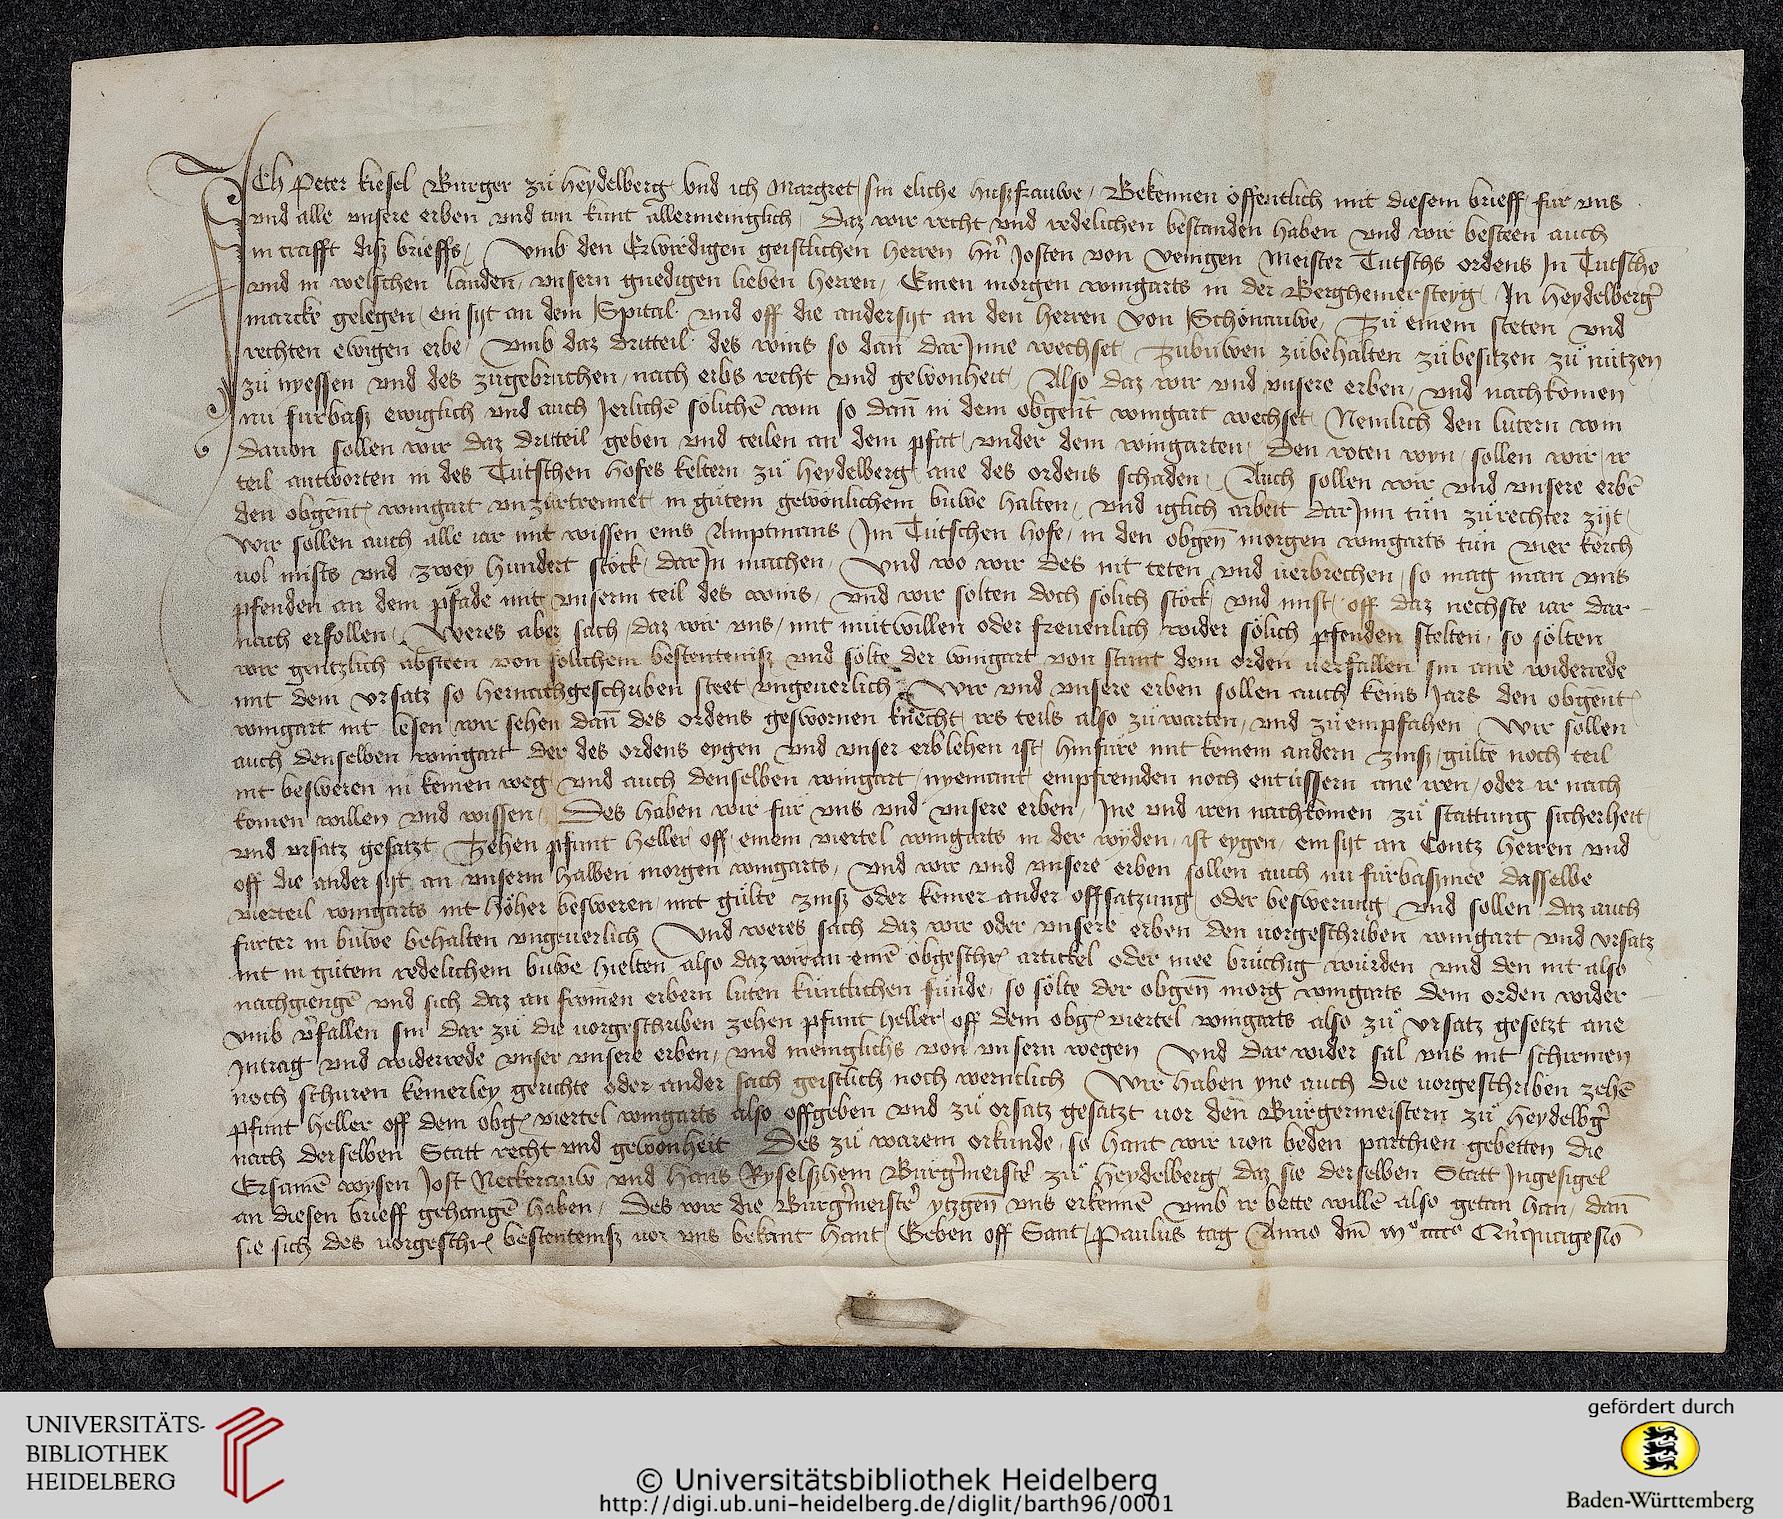 Ich Peter kiesel Burger zů heydelberg vnd ich margret sin eliche huszfrauwe Bekennen öffentlich mit diesem brieff fur vns
vnd alle vnsere erben vnd tun kunt allermeniglich Daz wir recht vnd redelichen bestanden haben vnd wir besteen auch
in crafft disz brieffs vmb den Erwirdigen geistlichen herren hn̄ Josten von venigen meister Tutschs ordens In Tutschē
vnd in welschen landen vnsern gnedigen lieben herren Einen morgen wingarts in der Bergheimersteyg In heydelbergr̄
marcke gelegen ein sijt an dem Spital vnd off die andersijt an den herren von Schönauwe Zů einem steten vnd
rechten ewigen erbe vmb daz dritteil des wins so dan̄ darJnne wechset Zubuwen zůbehalten zůbesitzen zů nutzen
zů nyessen vnd des zůgebruchen nach erbs recht vnd gewonheit Also daz wir vnd vnsere erben vnd nachkomen
nu furbasz ewiglich vnd auch Jerlichē sölichē win so dan̄ in dem obgen̄t wingart wechset Nemlich den lutern win
dauon sollen wir daz dritteil geben vnd teilen an dem pfat vnder dem wingarten Den roten wyn sollen wir ir
teil antworten in des Tutschen hofes keltern zů heydelberg ane des ordens schaden Auch sollen wir vnd vnsere erbē
den obgen̄t wingart vnzurtrennet in gůtem gewonlichem buwe halten vnd iglich arbeit darJnn tůn zůrechter zijt
wir sollen auch alle iar mit wissen eins Amptmans Jm Tutschen hofe in den obgen̄ morgen wingarts tůn vier kerch
vol mists vnd zwey hundert stöck darJn machen Vnd wo wir des nit teten vnd verbrechen so mag man vns
pfenden an dem pfade mit vnserm teil des wins vnd wir sölten doch sölich stöck vnd mist off daz nechste iar dar
nach erfollen Weres aber sach daz wir vns mit můtwillen oder freuenlich wider sölich pfenden stelten so sölten
wir gentzlich absteen von sölichem bestentenisz vnd sölte der wingart von stunt dem orden verfallen sin ane widerrede
mit dem vrsatz so hernachgeschriben steet vngeuerlich Wir vnd vnsere erben sollen auch keins Jars den obgen̄t
wingart nit lesen wir sehen dan̄ des ordens geswornen knecht irs teils also zůwarten vnd zůempfahen Wir sollen
auch denselben wingart der des ordens eygen vnd vnser erblehen ist hinfure mit keinem andern zinsz gulte noch teil
nit besweren in keinen weg vnd auch denselben wingart nyemant empfremden noch entussern ane iren oder ir nach
komen willen vnd wissen Des haben wir fur vns vnd vnsere erben Jne vnd iren nachkomen zů stattung sicherheit
vnd vrsatz gesatzt Zehen pfunt heller off einem viertel wingarts in der wyden ist eygen ein sijt an Contz herren vnd
off die ander sijt an vnserm halben morgen wingarts vnd wir vnd vnsere erben sollen auch nu furbaszmee dasselbe
vierteil wingarts nit höher besweren mit gulte zinsz oder keiner ander offsatzung oder beswerung vnd sollen daz auch
furter in buwe behalten vngeuerlich Vnd weres sach daz wir oder vnsere erben den vorgeschriben wingart vnd vrsatz
nit in gůtem redelichem buwe hielten also daz wir an einē obgeschr artickel oder mee bruchig wurden vnd den nit also
nachgiengē vnd sich daz an from̄en erbern luten kuntlichen funde so sölte der obgen̄ morg wingarts dem orden wider
vmb v̄fallen sin dar zů die vorgeschriben zehen pfunt heller off dem obg viertel wingarts also zů vrsatz gesetzt ane
Jntrag vnd widerrede vnser vnsere erben vnd meniglichs von vnsern wegen Vnd dar wider sal vns nit schirmen
noch schuren keinerley gerichte oder ander sach geistlich noch werntlich Wir haben yne auch die vorgeschriben zehē
pfunt heller off dem obg viertel wingarts also offgeben vnd zů orsatz gesatzt vor den Burgermeistern zů heydelbgr̄
nach derselben Statt recht vnd gewonheit Des zů warem orkunde so hant wir von beden parthien gebetten die
Ersamē wysen Jost Neckerauw vnd Hans Ryselszhem Burgr̄meistē zů heydelberg daz sie derselben Statt Jngesigel
an diesen brieff gehangē haben Des wir die Burgr̄meistr̄ ytzgen̄ vns erkennē vmb ir bette willē also getan han dan̄
sie sich des vorgeschr bestentenisz vor vns bekant hant Geben off Sant Paulus tag Anno dn̄i mº ccccº Quinquagesiō
UNIVERSITÄTS-
BIBLIOTHEK
HEIDELBERG
© Universitätsbibliothek Heidelberg
http://digi.ub.uni-heidelberg.de/diglit/barth96/0001
gefördert durch
Baden-Württemberg